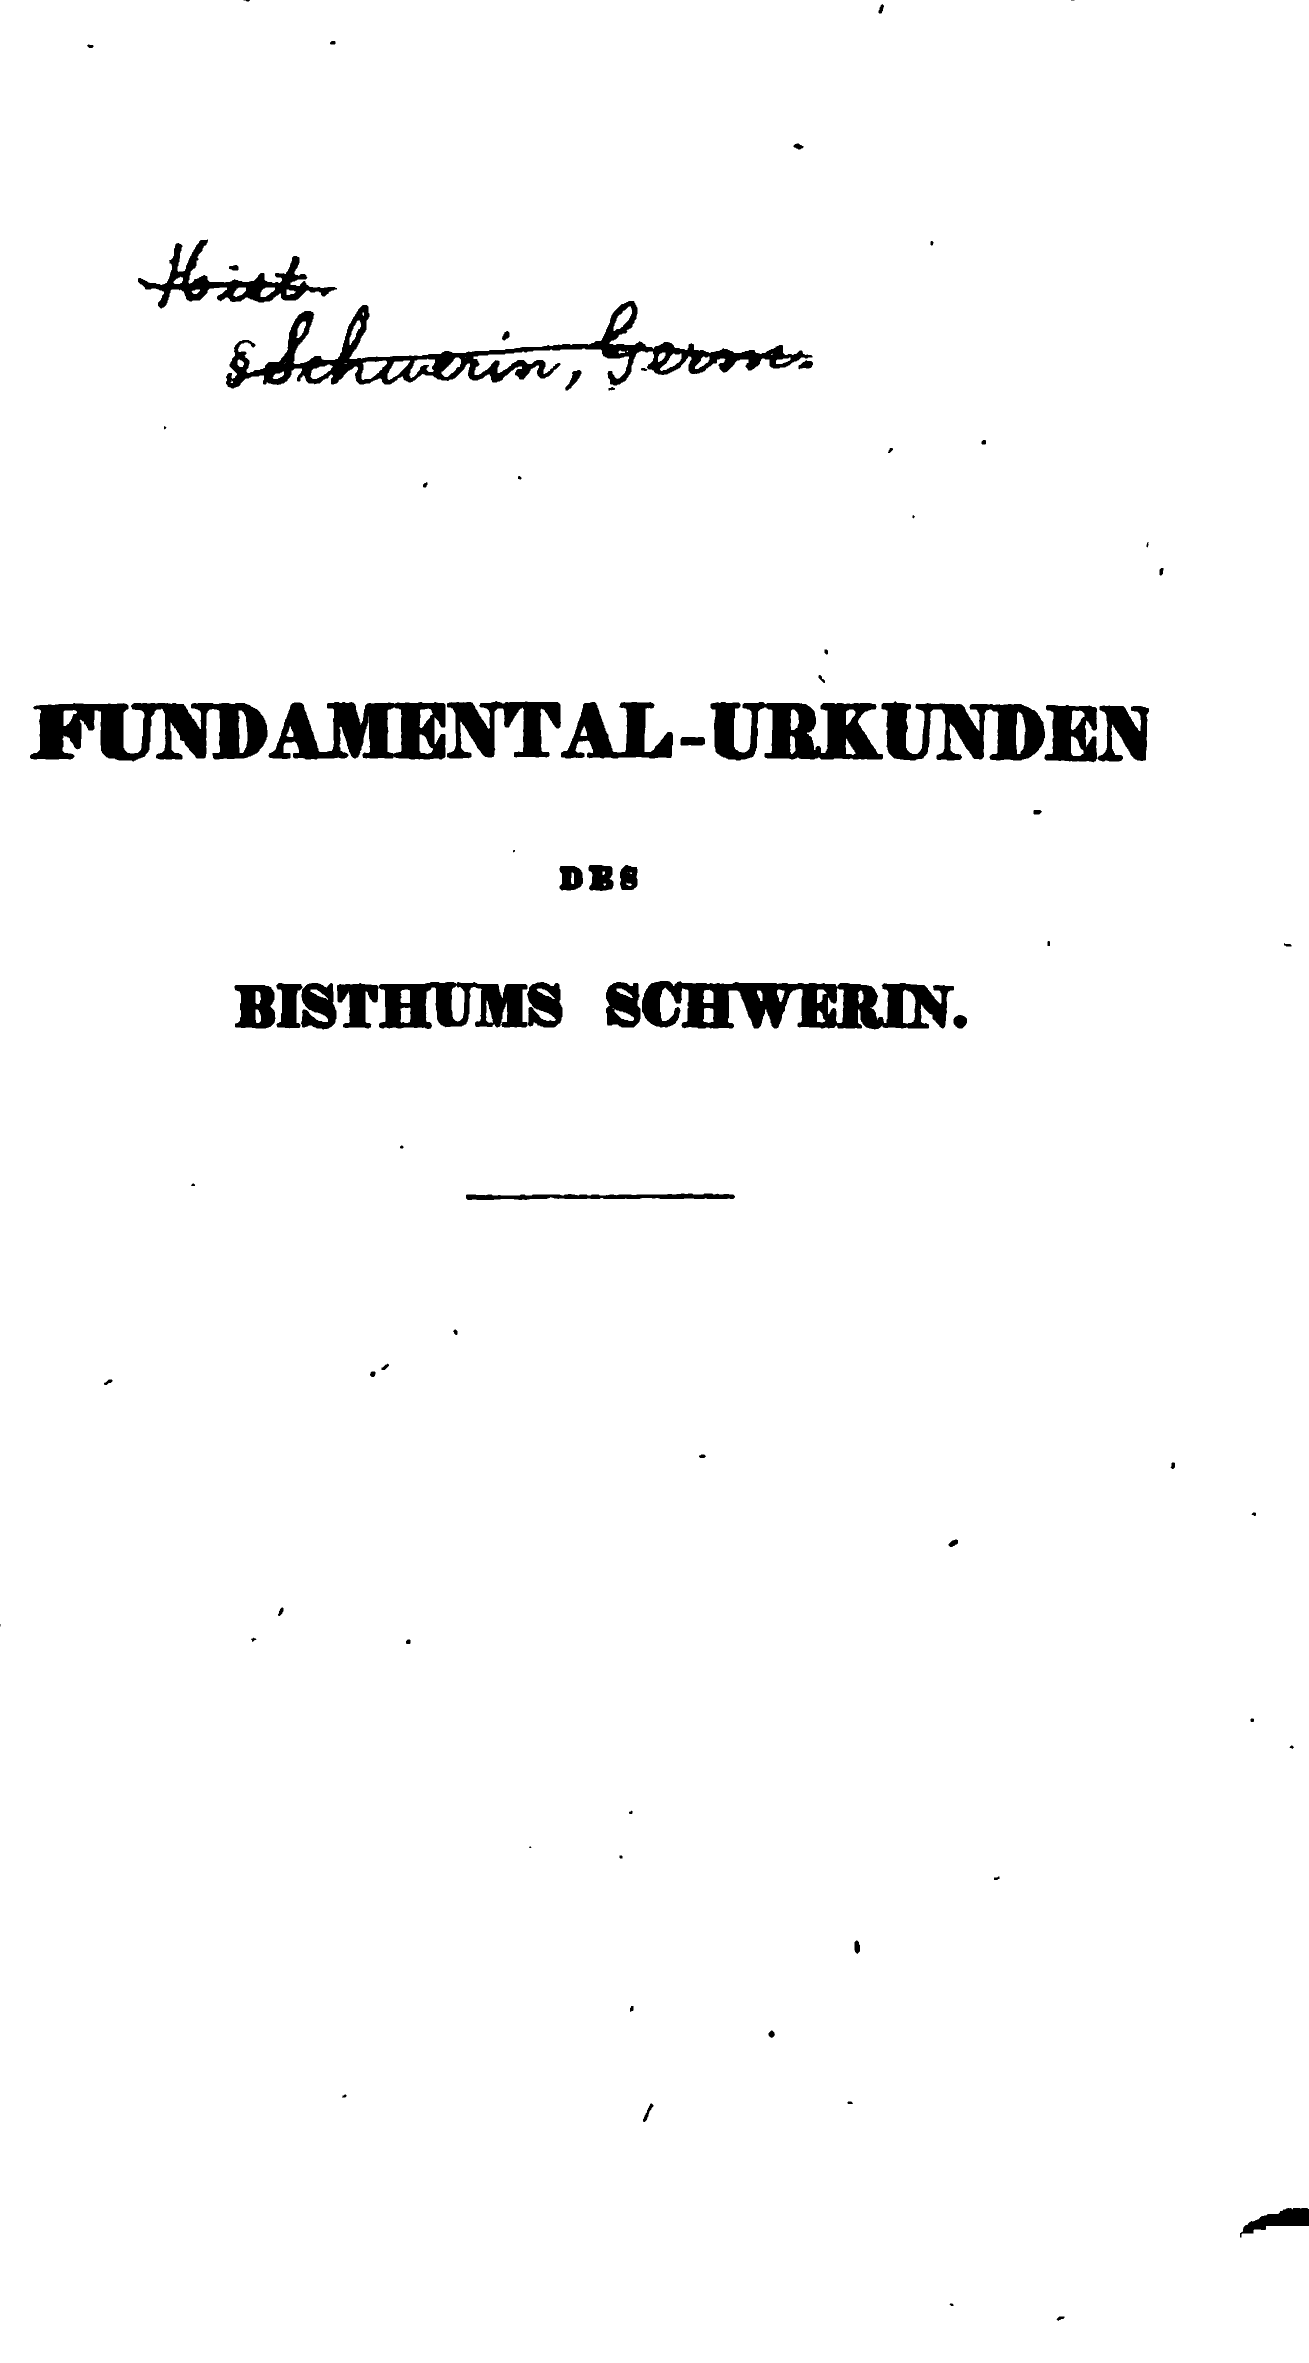 Hist
§ Schwerin, Germ.
FUNDAMENTAL-URKUNDEN
DES
BISTHUMS SCHWERIN.